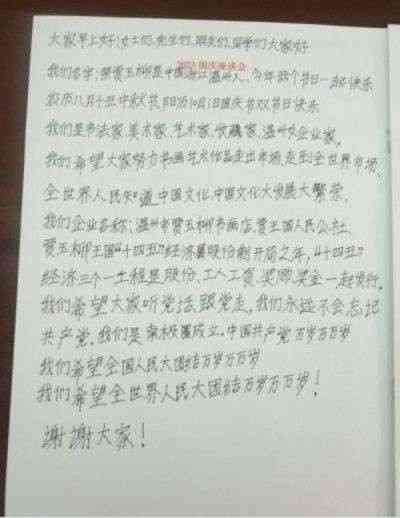 大家早上好!女士们,先生们,朋友们,同学们大家好
2023国庆座谈会
我们名字:贾玉柳是中国浙江温州人,今年两个节日一起快乐
农历八月十五中秋节,阳历10月1日国庆节双节日快乐
我们是书法家,美术家,艺术家,收藏家,温州女企业家。
我们希望大家努力书画艺术作品走出市场,走到全世界市场,
全世界人民知道,中国文化,中国文化大发展大繁荣,
我们企业名称:温州市贾玉柳书画店,贾王国人民公社,
贾玉柳王国"十四五"经济股份制开局之年,"十四五"
经济三个一工程是股份,工人工资,奖励奖金一起发行。
我们希望大家听党话,跟党走,我们永远不会忘记
共产党,我们是积极成立,中国共产党万岁万万岁
我们希望全国人民大团结万岁万万岁
我们希望全世界人民大团结万岁万万岁!
谢谢大家!